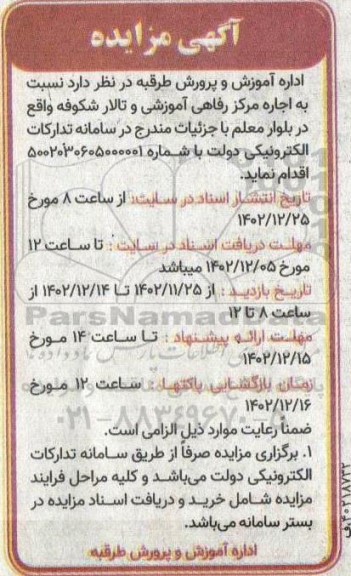 آگهی مزایده
اداره آموزش و پرورش طرقبه در نظر دارد نسبت
به اجاره مرکز رفاهی آموزشی و تالار شکوفه واقع
در بلوار معلم با جزئیات مندرج در سامانه تدارکات
الکترونیکی دولت با شماره ۵۰۰۲۰۳۰۶۰۵۰۰۰۰۰۱
اقدام نماید.
تاریخ انتشار اسناد در سایت: از ساعت ۸ مورخ
۱۴۰۲/۱۲/۲۵
مهلت دریافت اسناد در سایت : تا ساعت ۱۲
مورخ ۱۴۰۲/۱۲/۰۵ میباشد
تاریخ بازدید : از ۱۴۰۲/۱۱/۲۵ تا ۱۴۰۲/۱۲/۱۴ از
ساعت ۸ تا ۱۲
مهلت ارائه پیشنهاد : تا ساعت ۱۴ مورخ
۱۴۰۲/۱۲/۱۵
زمان بازگشایی پاکتها : ساعت ۱۲ مورخ
۱۴۰۲/۱۲/۱۶
ضمناً رعایت موارد ذیل الزامی است.
۱. برگزاری مزایده صرفاً از طریق سامانه تدارکات
الکترونیکی دولت می‌باشد و کلیه مراحل فرایند
مزایده شامل خرید و دریافت اسناد مزایده در
بستر سامانه می‌باشد.
اداره آموزش و پرورش طرقبه
ParsNamadData
۰۲۱-۸۸۳۴۹۶۷۰-۵